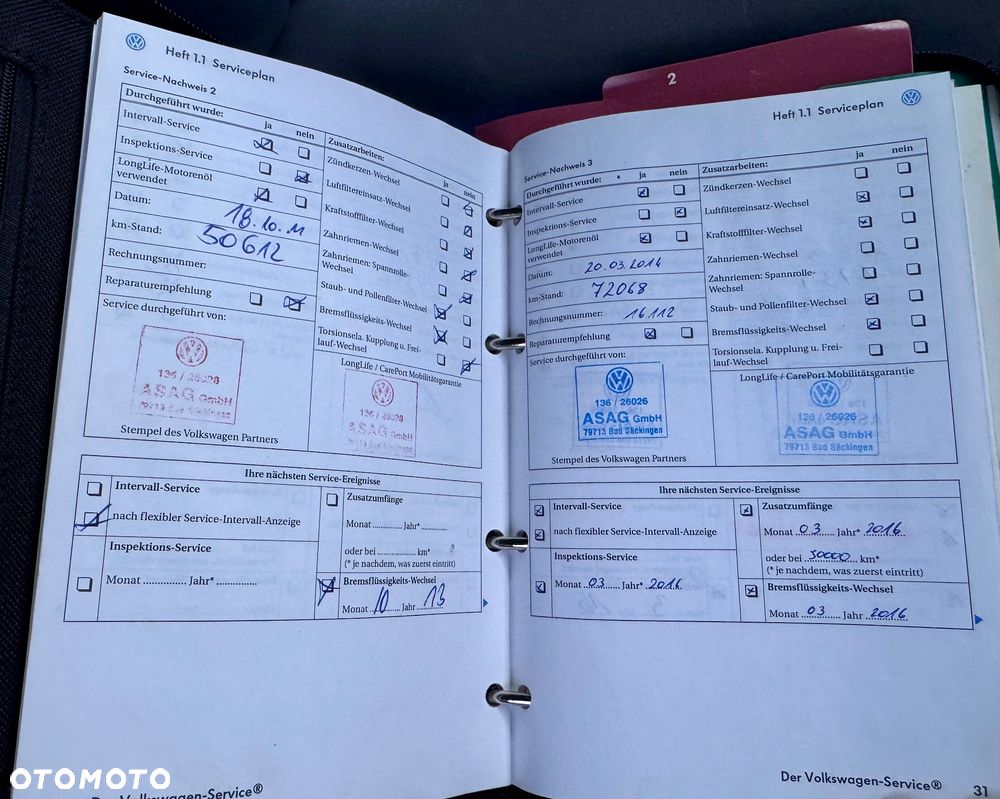 Heft 1.1 Serviceplan
Service-Nachweis 2
Durchgeführt wurde: ja nein
Intervall-Service
Inspektions-Service
LongLife-Motorenöl
verwendet
Datum: 18.10.11
km-Stand: 50612
Rechnungsnummer:
Reparaturempfehlung
Service durchgeführt von:
136 / 26026
ASAG GmbH
79713 Bad Säckingen
Stempel des Volkswagen Partners
Zusatzarbeiten: ja nein
Zündkerzen-Wechsel
Luftfiltereinsatz-Wechsel
Kraftstofffilter-Wechsel
Zahnriemen-Wechsel
Zahnriemen: Spannrolle-
Wechsel
Staub- und Pollenfilter-Wechsel
Bremsflüssigkeits-Wechsel
Torsionsela. Kupplung u. Frei-
lauf-Wechsel
LongLife / CarePort Mobilitätsgarantie
136 / 26026
ASAG GmbH
79713 Bad Säckingen
Ihre nächsten Service-Ereignisse
Intervall-Service
nach flexibler Service-Intervall-Anzeige
Inspektions-Service
Monat ............... Jahr* ..............
Zusatzumfänge
Monat ........... Jahr* ............
oder bei ................ km*
(* je nachdem, was zuerst eintritt)
Bremsflüssigkeits-Wechsel
Monat 10 Jahr 13
Der Volkswagen-Service®
2
Heft 1.1 Serviceplan
Service-Nachweis 3
Durchgeführt wurde: ja nein
Intervall-Service
Inspektions-Service
LongLife-Motorenöl
verwendet
Datum: 20.03.2014
km-Stand: 72068
Rechnungsnummer: 16112
Reparaturempfehlung
Service durchgeführt von:
136 / 26026
ASAG GmbH
79713 Bad Säckingen
Stempel des Volkswagen Partners
Zusatzarbeiten: ja nein
Zündkerzen-Wechsel
Luftfiltereinsatz-Wechsel
Kraftstofffilter-Wechsel
Zahnriemen-Wechsel
Zahnriemen: Spannrolle-
Wechsel
Staub- und Pollenfilter-Wechsel
Bremsflüssigkeits-Wechsel
Torsionsela. Kupplung u. Frei-
lauf-Wechsel
LongLife / CarePort Mobilitätsgarantie
136 / 26026
ASAG GmbH
79713 Bad Säckingen
Ihre nächsten Service-Ereignisse
Intervall-Service
nach flexibler Service-Intervall-Anzeige
Inspektions-Service
Monat 03 Jahr* 2016
Zusatzumfänge
Monat 03 Jahr* 2016
oder bei 30000 km*
(* je nachdem, was zuerst eintritt)
Bremsflüssigkeits-Wechsel
Monat 03 Jahr 2016
Der Volkswagen-Service®
31
OTOMOTO